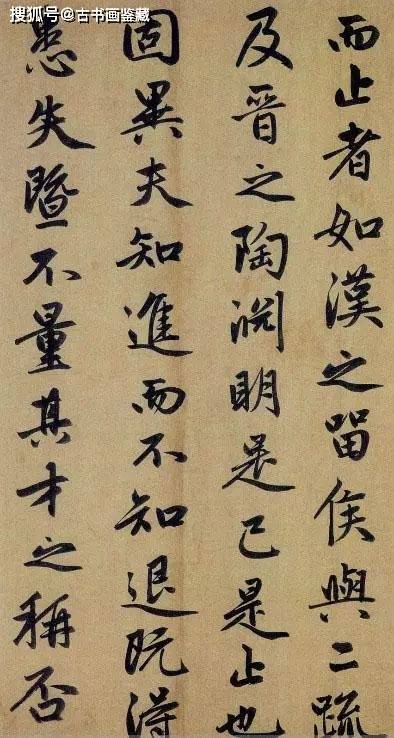 搜狐号@古书画鉴藏
而止者如漢之留侯與二疏
及晉之陶渊明是已是止也
固異夫知進而不知退既得
患失暨不量其才之稱否